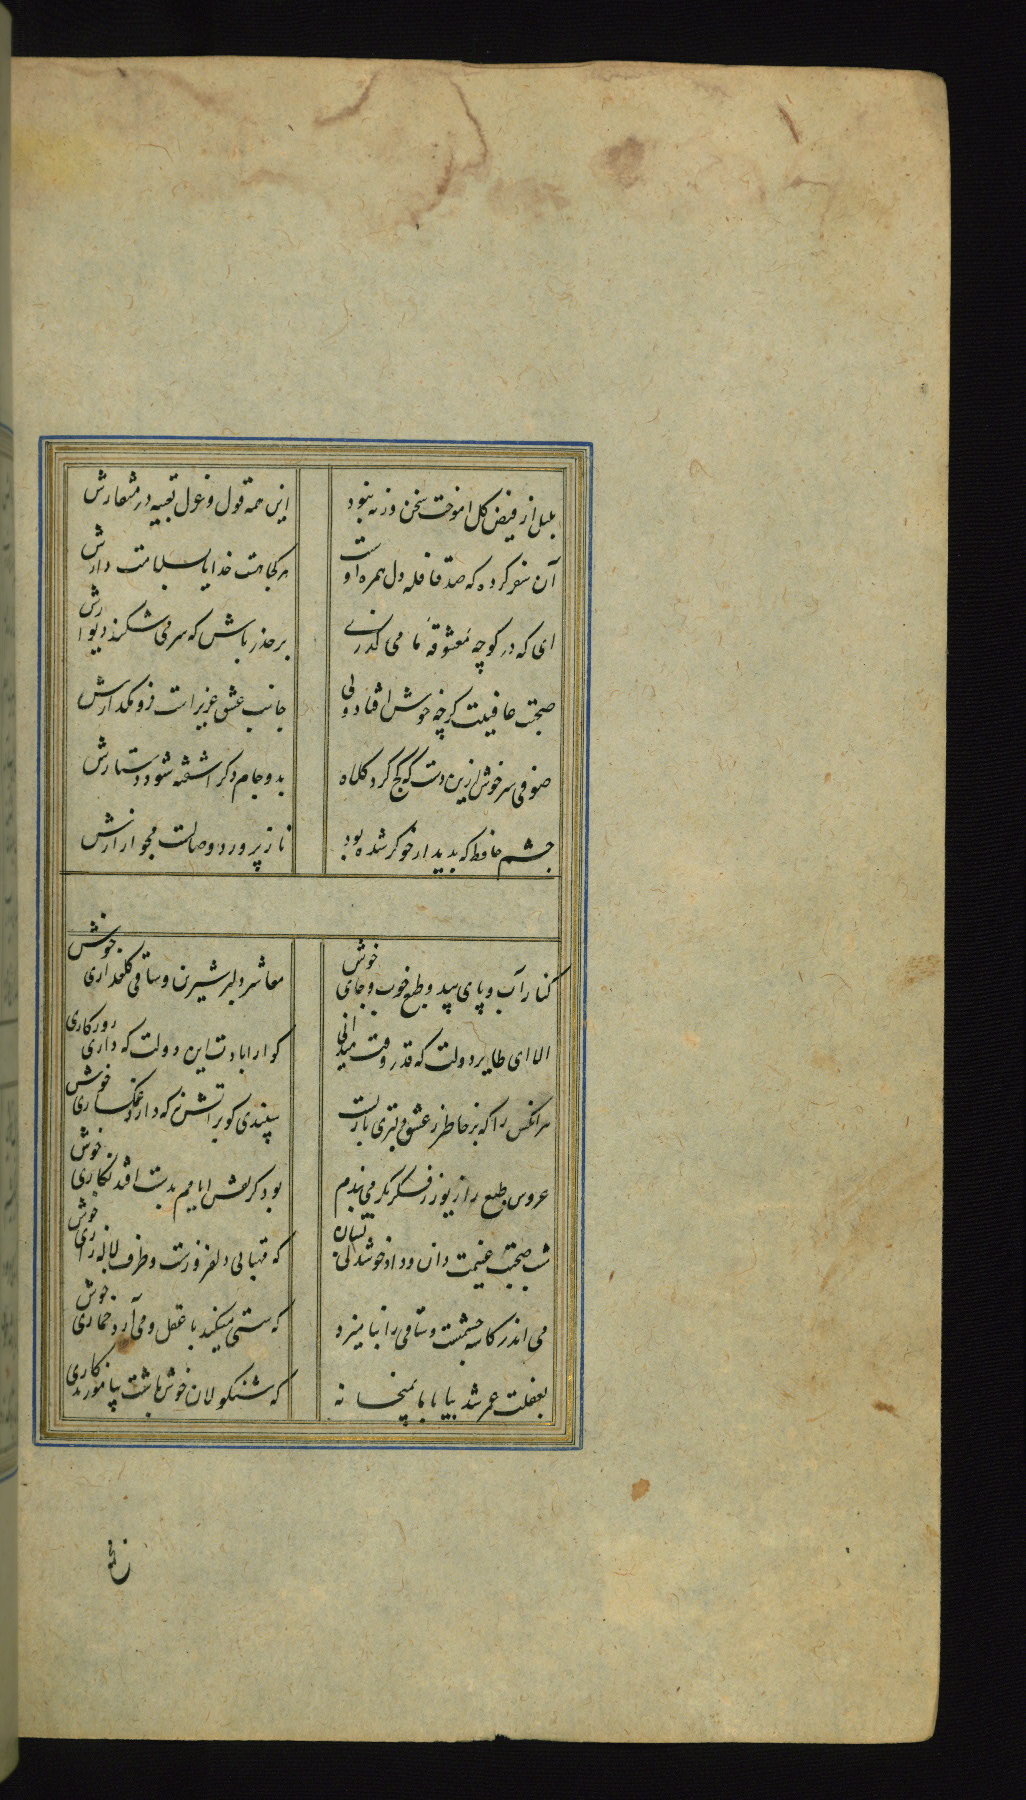 بلبل از فیض گل اموخت سخن ورنه نبود این همه قول و غزل تعبیه در منقارش
آن سفر کرده که صد قافله دل همره اوست هر کجا هست خدایا بسلامت دارش
ای که در کوچه معشوقهٔ ما می گذری بر حذر باش که سر می شکند دیوارش
صحبت عافیت گرچه خوش افتاد دلی جانب عشق عزیز است فرو مگذارش
صوفی سرخوش ازین دست که کج کرد کلاه بدو جام دگر اشفته شود دستارش
چشم حافظ که بدیدار خوگر شده بود ناز پرورد وصالست مجو ازارش
کنار آب و پای بید و طبع خوب و جای خوش معاشر دلبر شیرین و ساقی گلعذاری خوش
الا ای طایر دولت که قدر وقت میدانی کوارا بادت این دولت که داری روزکاری خوش
هر انکس را که بر خاطر ز عشق دلبری باریست سپندی کو بر اتش نه که دارد غمکساری خوش
عروس طبع را زیور ز فکر بکر می بندم بود کز نقش ایامم بدست افتد نکاری خوش
شب صحبت غنیمت دان و داد خوشدلی بستان که مهتابی دلفروزست و طرف لاله زاری خوش
می اندر کاسه چشمست و ساقی را بنامیزد که مستی میکند با عقل و می آرد خماری
بغفلت عمر شد بیا با ما بمیخانه که شنکولان خوش باشت بیاموزند کاری